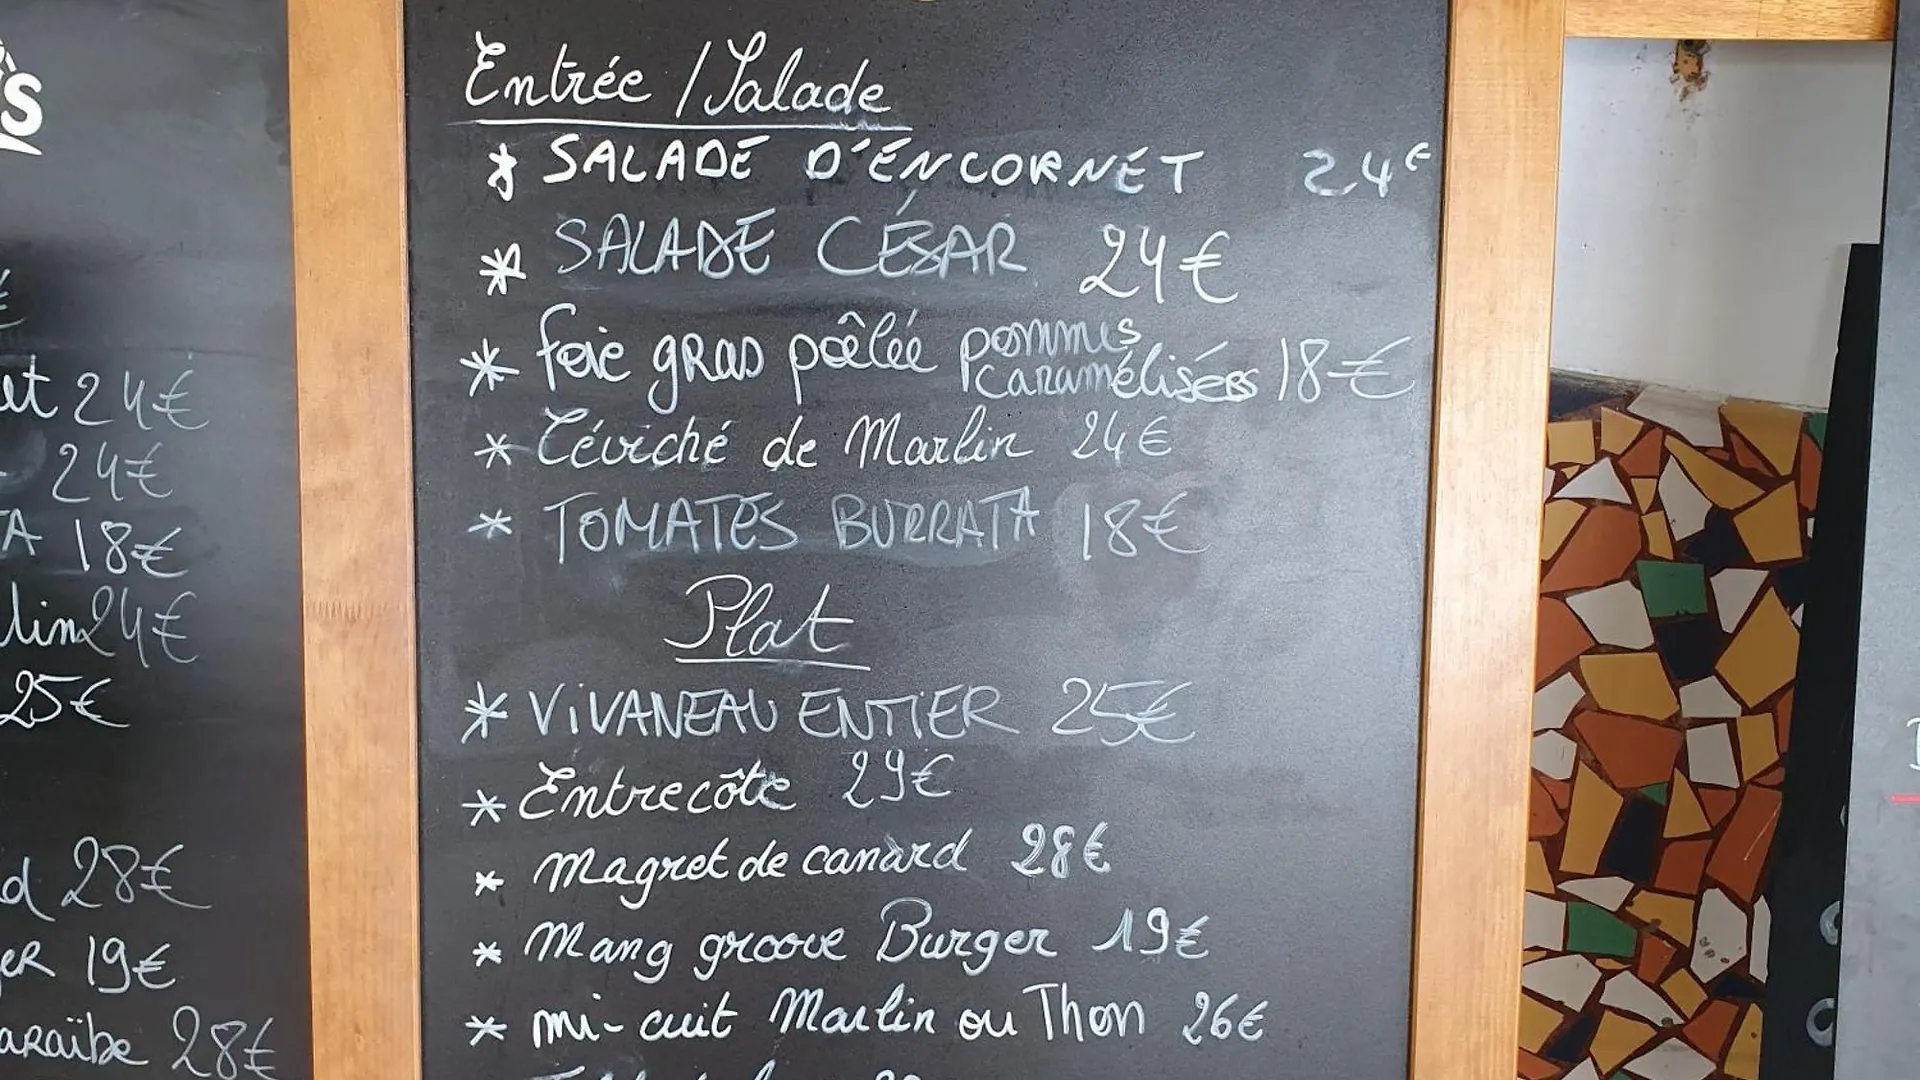 S
€
et 24€
24€
TA 18€
lin 24€
25€
d 28€
ER 19€
araïbe 28€
Entrée / Salade
* SALADE D'ENCORNET 24€
* SALADE CÉSAR 24€
* foie gras poêlée pommes caramélisées 18€
* Céviché de Marlin 24€
* TOMATES BURRATA 18€
Plat
* VIVANEAU ENTIER 25€
* Entrecôte 29€
* Magret de canard 28€
* Mang groove Burger 19€
* mi-cuit Marlin ou Thon 26€